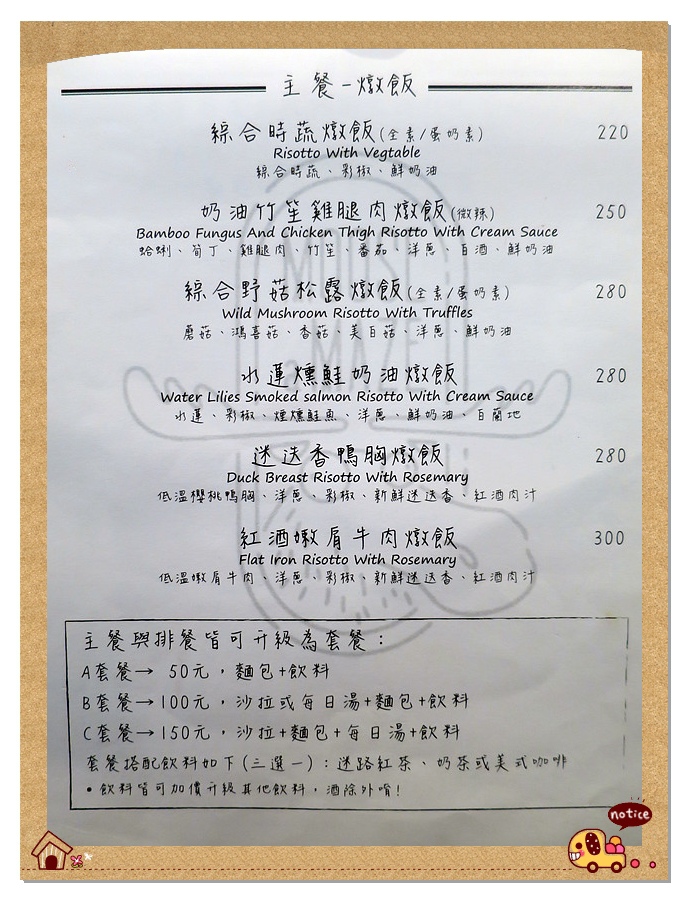 主餐-燉飯
綜合時蔬燉飯(全素/蛋奶素) 220
Risotto With Vegtable
綜合時蔬、彩椒、鮮奶油
奶油竹笙雞腿肉燉飯(微辣) 250
Bamboo Fungus And Chicken Thigh Risotto With Cream Sauce
蛤蜊、筍丁、雞腿肉、竹笙、番茄、洋蔥、白酒、鮮奶油
綜合野菇松露燉飯(全素/蛋奶素) 280
Wild Mushroom Risotto With Truffles
蘑菇、鴻喜菇、香菇、美白菇、洋蔥、鮮奶油
水蓮燻鮭奶油燉飯 280
Water Lilies Smoked salmon Risotto With Cream Sauce
水蓮、彩椒、煙燻鮭魚、洋蔥、鮮奶油、白蘭地
迷迭香鴨胸燉飯 280
Duck Breast Risotto With Rosemary
低溫櫻桃鴨胸、洋蔥、彩椒、新鮮迷迭香、紅酒肉汁
紅酒嫩肩牛肉燉飯 300
Flat Iron Risotto With Rosemary
低溫嫩肩牛肉、洋蔥、彩椒、新鮮迷迭香、紅酒肉汁
主餐與排餐皆可升級為套餐：
A套餐→ 50元，麵包+飲料
B套餐→100元，沙拉或每日湯+麵包+飲料
C套餐→150元，沙拉+麵包+每日湯+飲料
套餐搭配飲料如下(三選一)：迷路紅茶、奶茶或美式咖啡
•飲料皆可加價升級其他飲料，酒除外唷!
notice